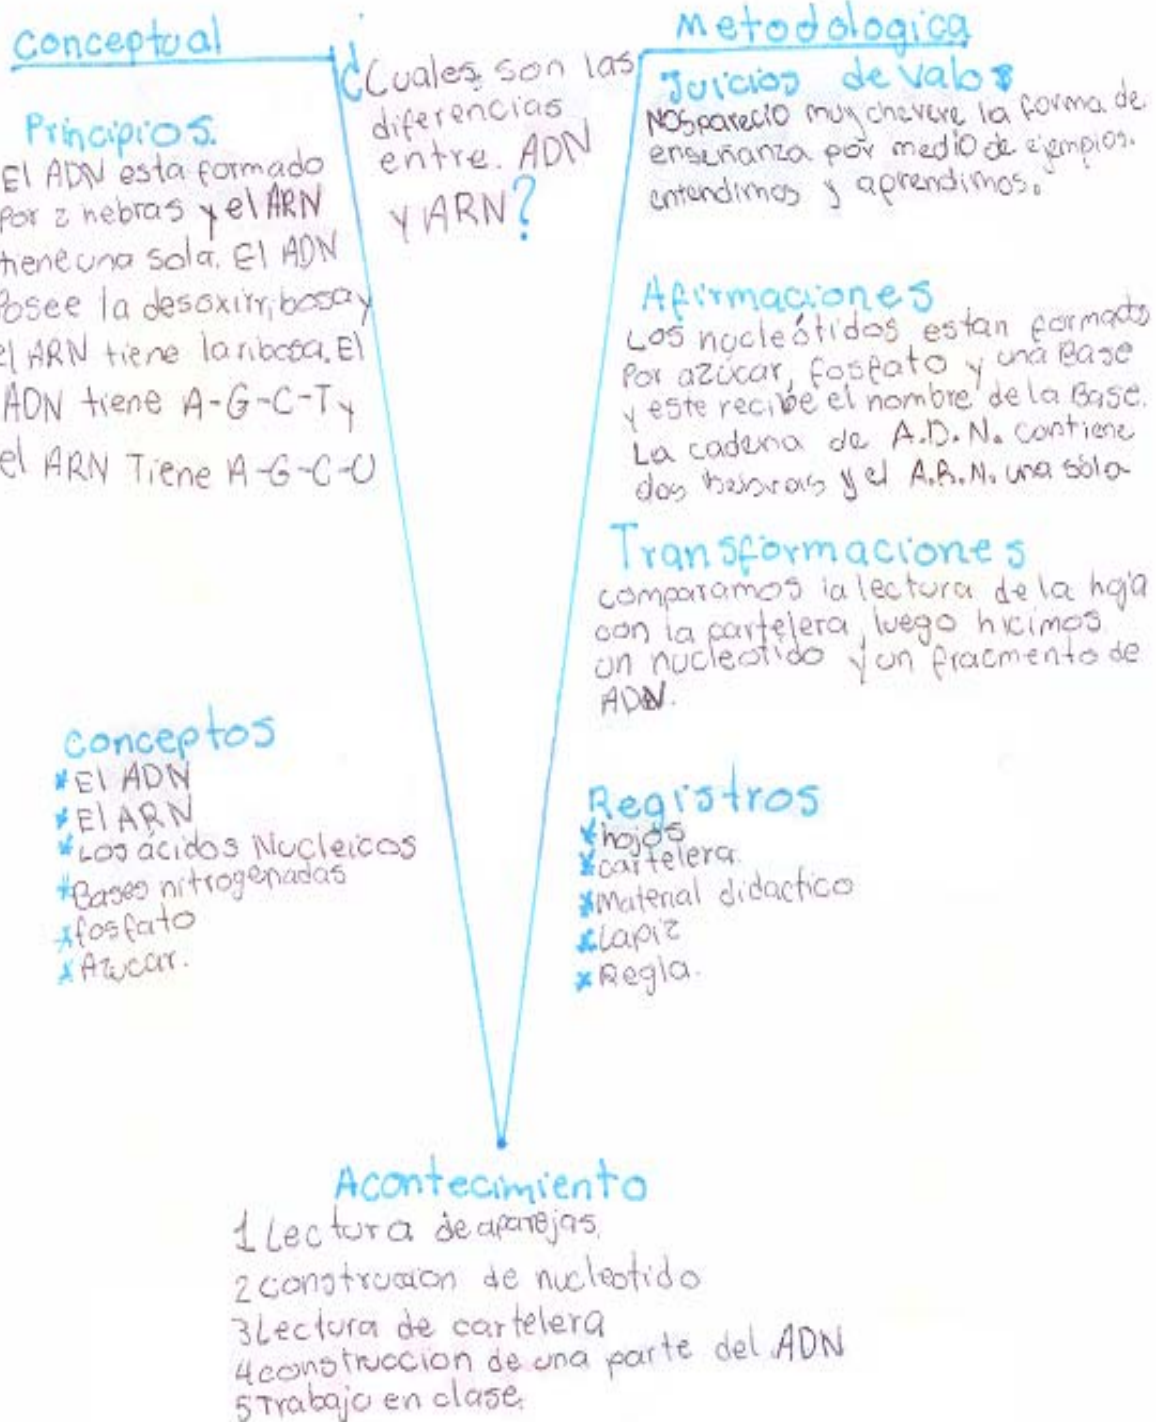 conceptual
Principios.
El ADN esta formado
Por 2 hebras y el ARN
tiene una sola. El ADN
Posee la desoxirribosa y
el ARN tiene la ribosa. El
ADN tiene A-G-C-T y
el ARN Tiene A-G-C-U
conceptos
* El ADN
* El ARN
* Los ácidos Nucleicos
* Bases nitrogenadas
* fosfato
* Azucar.
¿Cuales son las
diferencias
entre. ADN
y ARN?
Metodologica
Juicios de valor
Nos parecio muy chevere la forma de
enseñanza por medio de ejemplos.
entendimos y aprendimos.
Afirmaciones
Los nucleótidos estan formados
Por azúcar, fosfato y una Base
y este recibe el nombre de la Base.
La cadena de A.D.N. contiene
dos hebras y el A.R.N. una sola
Transformaciones
comparamos la lectura de la hoja
con la cartelera, luego hicimos
un nucleotido y un fracmento de
ADN.
Registros
* hojas
* cartelera.
* Material didactico
* Lapiz
* Regla.
Acontecimiento
1 Lectura de aparejas.
2 construccion de nucleotido
3 Lectura de cartelera
4 construccion de una parte del ADN
5 Trabajo en clase.